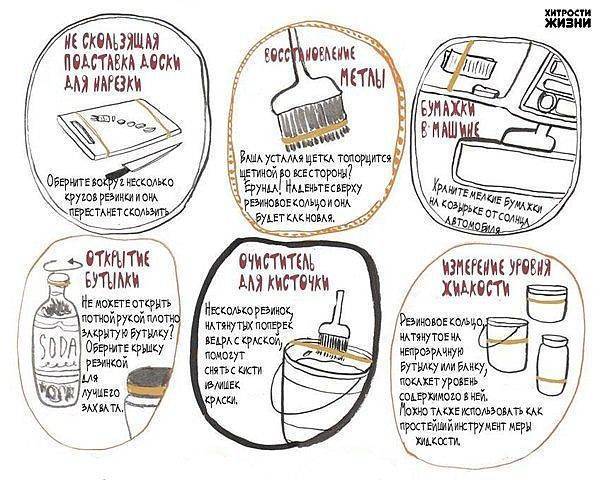 ХИТРОСТИ
ЖИЗНИ
НЕ СКОЛЬЗЯЩАЯ
ПОДСТАВКА ДОСКИ
ДЛЯ НАРЕЗКИ
Оберните вокруг несколько
кругов резинки и она
перестанет скользить
ВОССТАНОВЛЕНИЕ
МЕТЛЫ
Ваша усталая щетка топорщится
щетиной во все стороны?
Ерунда! Наденьте сверху
резиновое кольцо и она
будет как новая.
БУМАЖКИ
В МАШИНЕ
Храните мелкие бумажки
на козырьке от солнца
автомобиля
ОТКРЫТИЕ
БУТЫЛКИ
Не можете открыть
потной рукой плотно
закрытую бутылку?
Оберните крышку
резинкой
для
лучшего
захвата.
SODA
ОЧИСТИТЕЛЬ
ДЛЯ КИСТОЧКИ
Несколько резинок,
натянутых поперек
ведра с краской,
помогут
снять с кисти
излишек
краски.
ИЗМЕРЕНИЕ УРОВНЯ
ЖИДКОСТИ
Резиновое кольцо,
натянутое на
непрозрачную
бутылку или банку,
покажет уровень
содержимого в ней.
Можно также использовать как
простейший инструмент меры
жидкости.